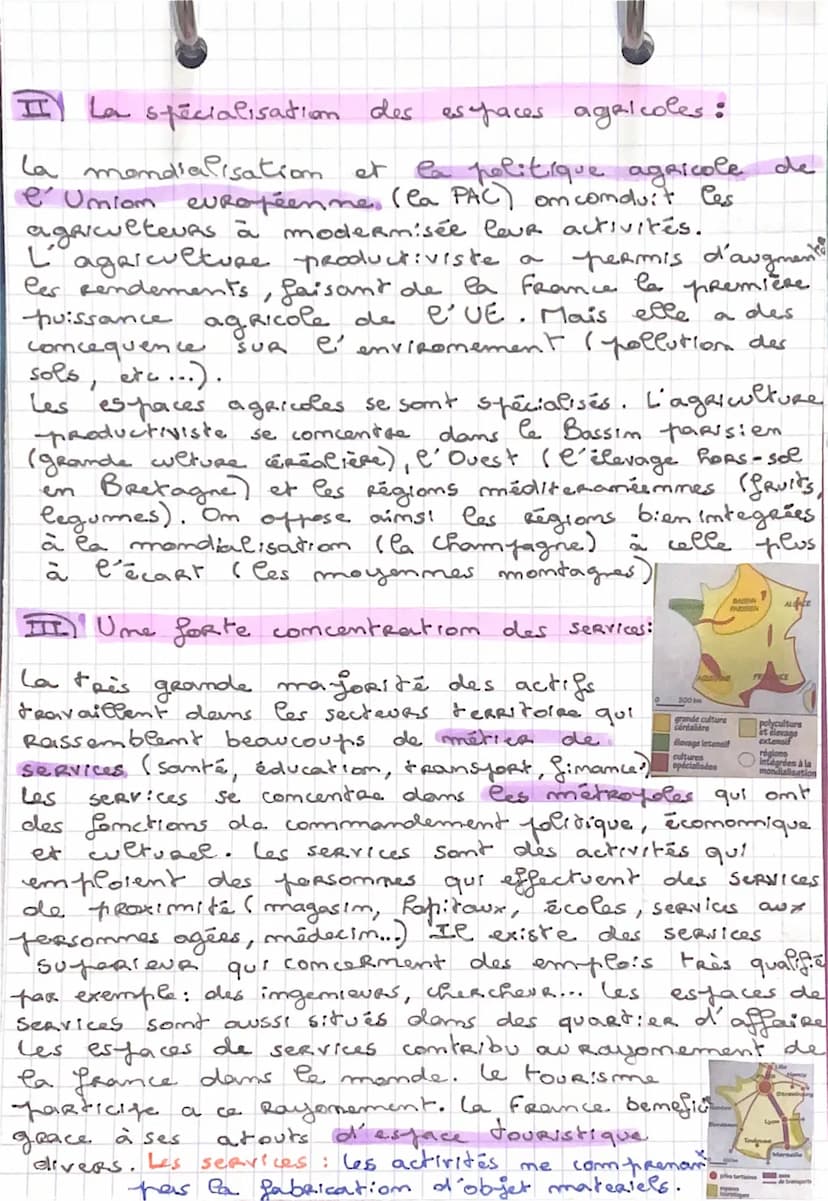 II) La spécialisation des espaces agricoles :
La mondialisation et la politique agricole de
l'Union européenne (la PAC) on conduit les
agriculteurs à modernisée leur activités.
L'agriculture productiviste a permis d'augmenter
les rendements, faisant de la France la première
puissance agricole de l'UE. Mais elle a des
concequence sur l'environement (pollution des
sols, etc...).
Les espaces agricoles se sont spécialisés. L'agriculture
productiviste se concentre dans le Bassin parisien
(grande culture céréalière), l'Ouest (l'élevage hors-sol
en Bretagne) et les régions méditeranéennes (fruits,
legumes). On oppose ainsi les régions bien integrées
à la mondialisation (la Champagne) à celle plus
à l'écart (les moyennes montagnes)
BASSIN PARISIEN
ALSACE
AQUITAINE
PROVENCE
0 300 km
grande culture céréalière
élevage intensif
cultures spécialisées
polyculture et élevage extensif
régions intégrées à la mondialisation
III) Une forte concentration des services :
La très grande majorité des actifs
travaillent dans les secteurs territoire qui
rassemblent beaucoups de métier de
services (santé, éducation, transport, finance)
Les services se concentre dans les métropoles qui ont
des fonctions de commandement politique, économique
et culturel. Les services sont des activités qui
emploient des personnes qui effectuent des services
de proximité (magasin, hopitaux, écoles, services aux
personnes agées, médecin...) Il existe des services
superieur qui concernent des emplois très qualifié
par exemple : des ingenieurs, chercheur... Les espaces de
services sont aussi situés dans des quartier d'affaire
Les espaces de services contribu au rayonement de
la france dans le monde. Le tourisme
participe a ce rayonement. La France benefici
grace à ses atouts d'espace touristique
divers. Les services : les activités ne comprenant
pas la fabrication d'objet materiels.
Lille
Nancy
Strasbourg
Lyon
Toulouse
Marseille
pôles tertiaires
axes de transports
espaces